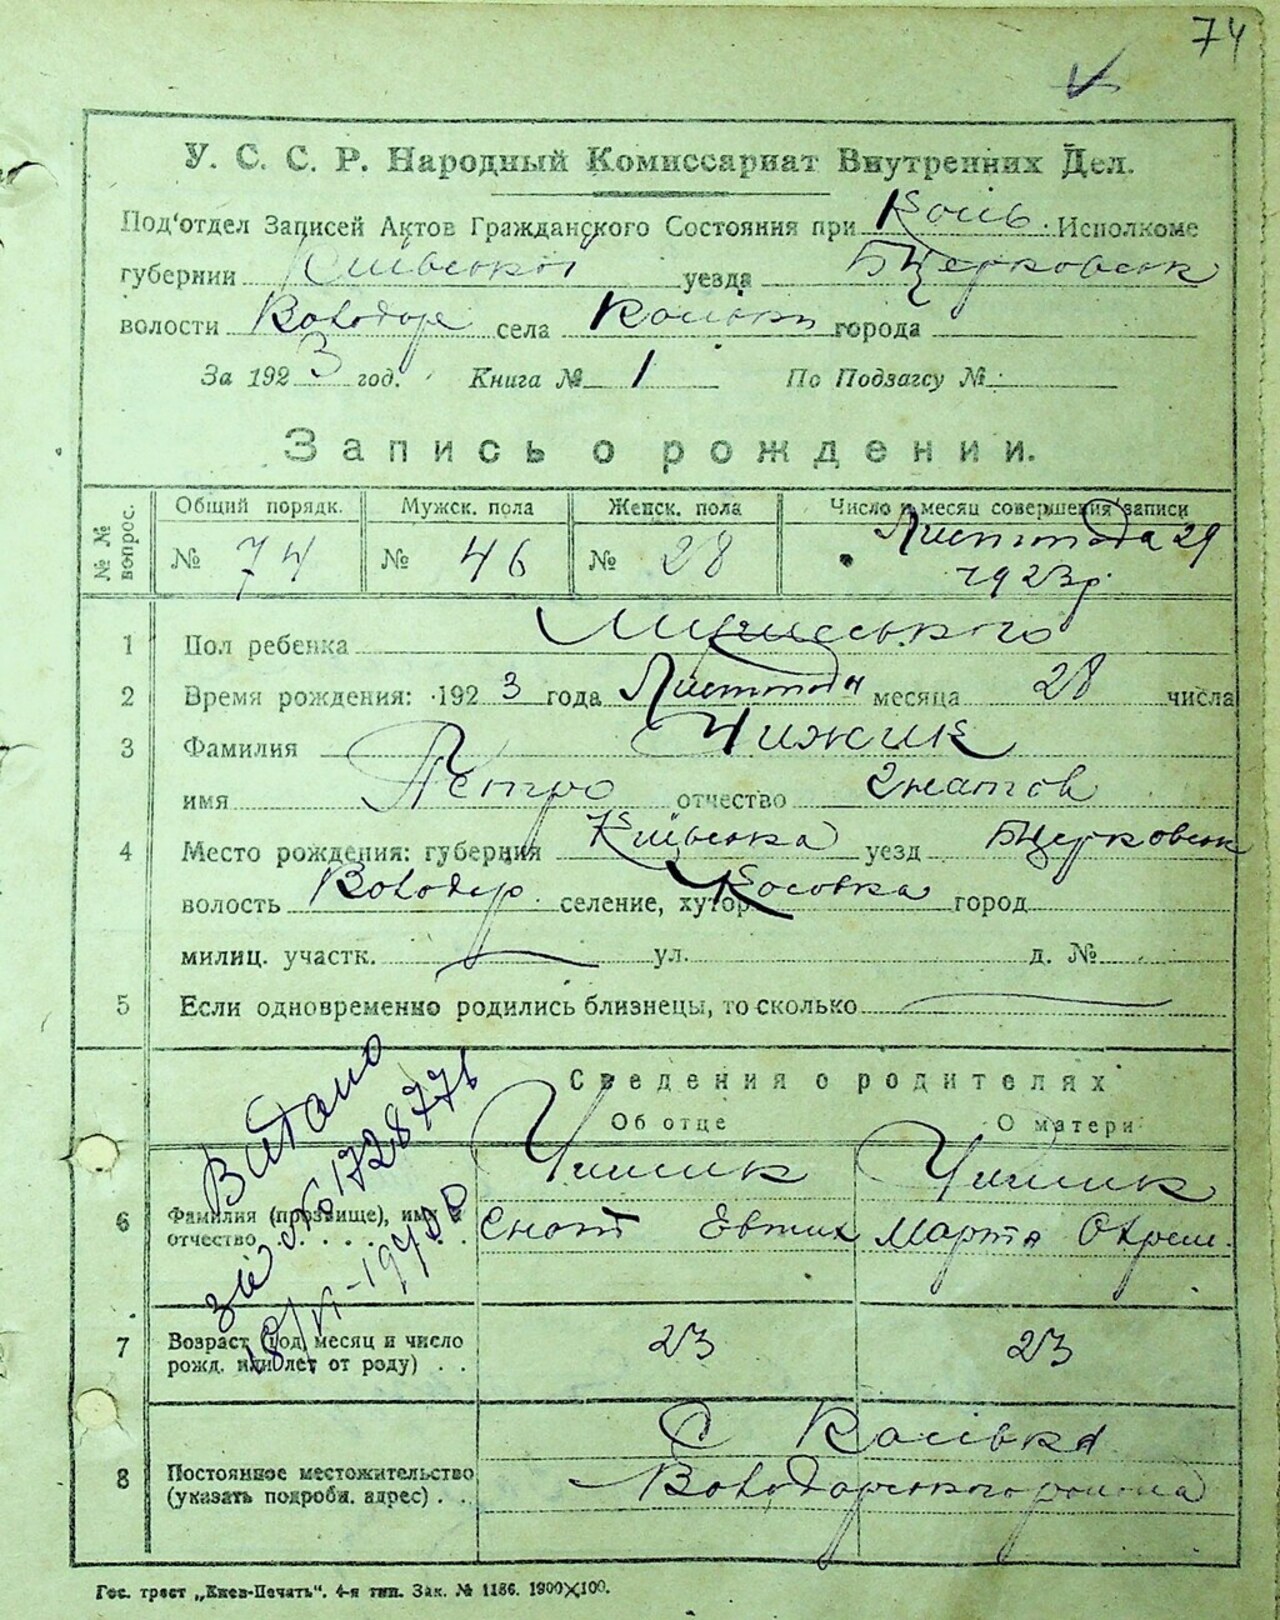 74
У. С. С. Р. Народный Комиссариат Внутренних Дел.
Под'отдел Записей Актов Гражданского Состояния при Косів. Исполкоме
губернии Київської уезда БЦерковськ
волости Володар села Косівки города
За 1923 год. Книга № 1 По Подзагсу №
Запись о рождении.
№ № вопрос. Общий порядк. Мужск. пола Женск. пола Число и месяц совершения записи
№ 74 № 46 № 28 Листопада 29
1923р.
1 Пол ребенка
2 Время рождения: 1923 года Листопада месяца 28 числа
3 Фамилия Чижик
имя Петро отчество
4 Место рождения: губерния Київська уезд БЦерковськ
волость Володар. селение, хутор Косовка город
милиц. участк. ул. д. №
5 Если одновременно родились близнецы, то сколько
Сведения о родителях
Об отце О матери
Видано
1728771
6 Фамилия (прозвище), имя и Чижик Чижик
отчество Евтих Марта
7 Возраст (год, месяц и число 23 23
рожд. или лет от роду)
8 Постоянное местожительство С Косівка
(указать подробн. адрес) Володарського района
Гос. трест „Киев-Печать". 4-я тип. Зак. № 1186. 1900×100.